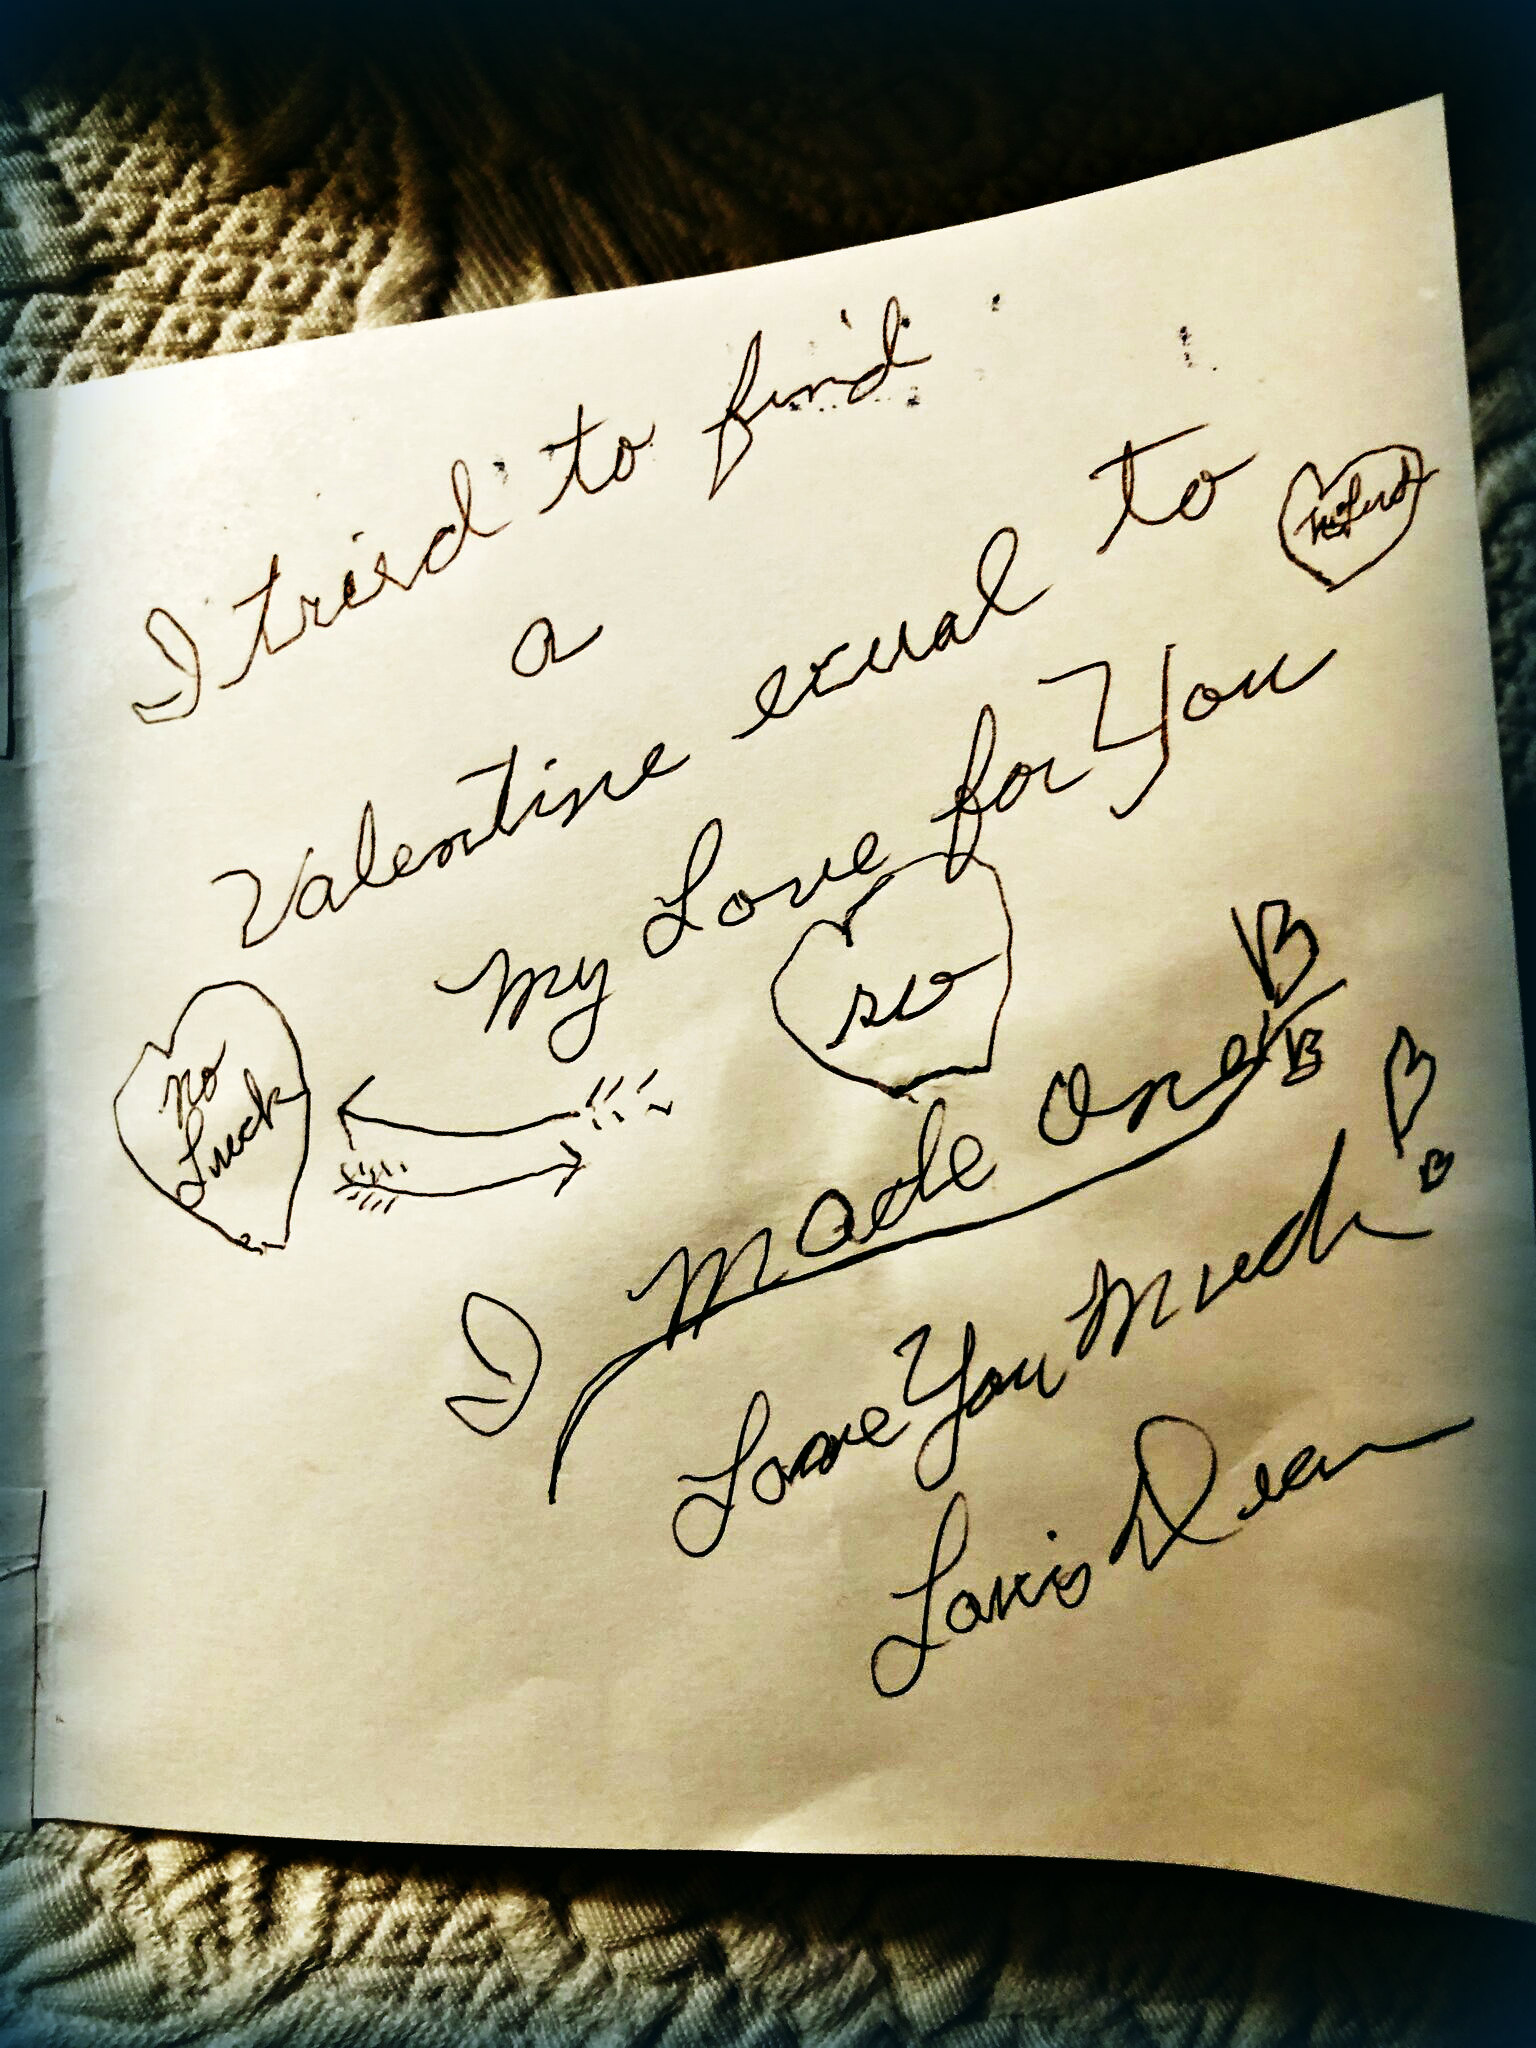 I tried to find
a
Valentine equal to
My Love for You
No
Luck
so
I Made One
Love You Much
Louis Dean